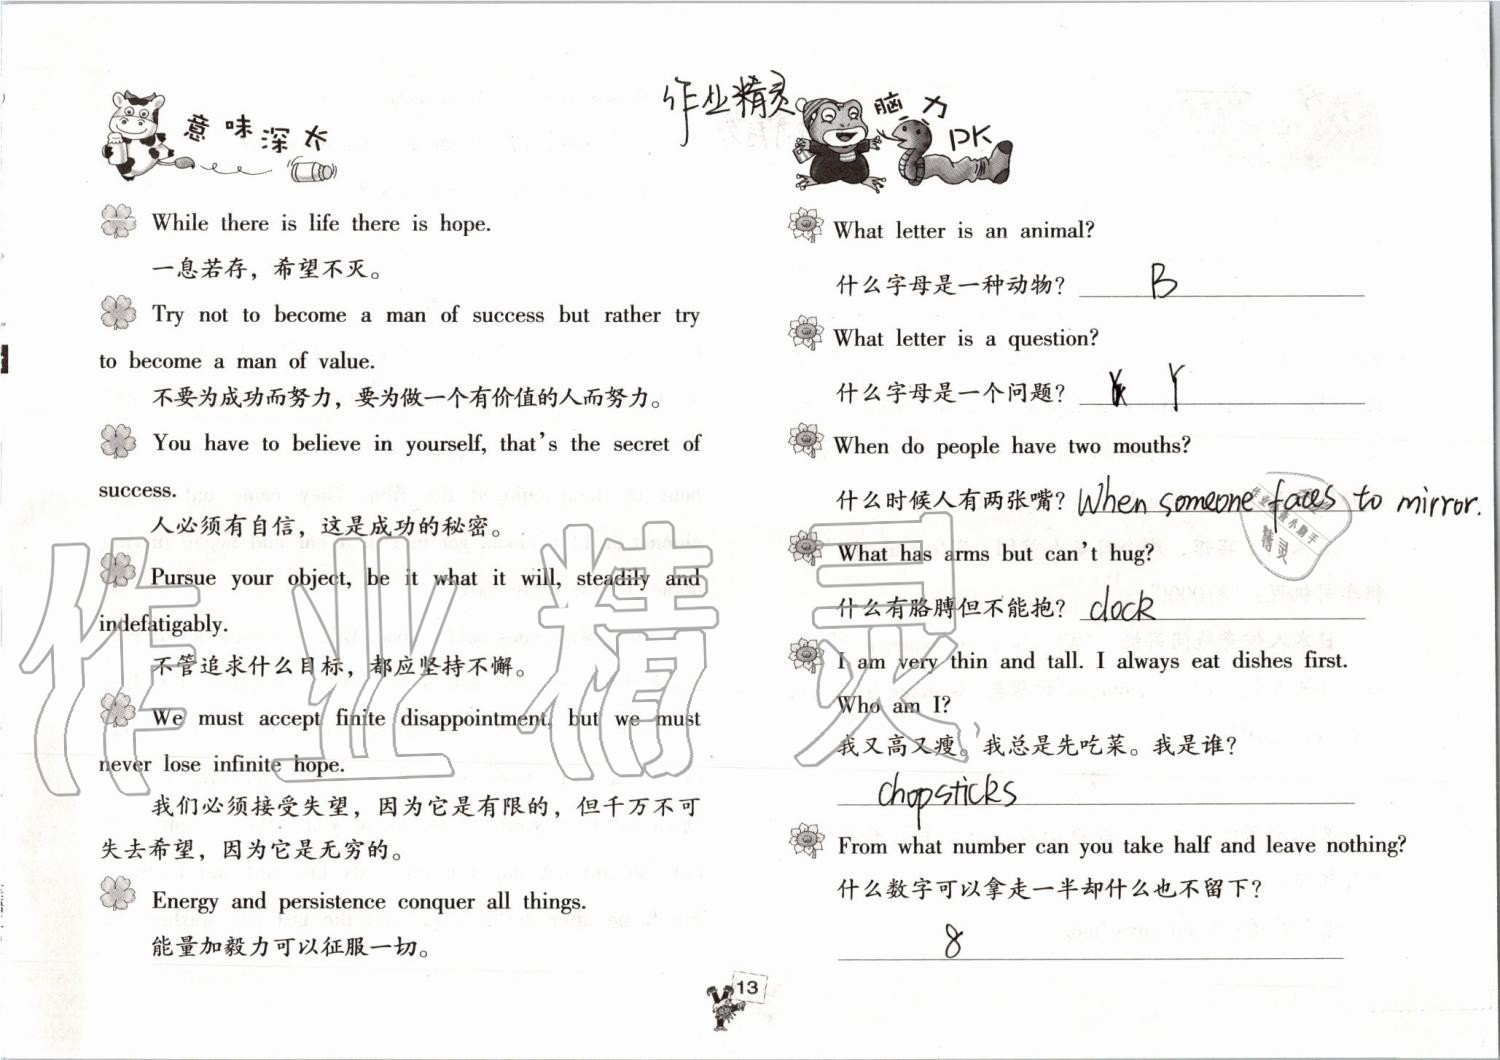 意味深大
While there is life there is hope.
一息若存，希望不灭。
Try not to become a man of success but rather try
to become a man of value.
不要为成功而努力，要为做一个有价值的人而努力。
You have to believe in yourself, that's the secret of
success.
人必须有自信，这是成功的秘密。
Pursue your object, be it what it will, steadily and
indefatigably.
不管追求什么目标，都应坚持不懈。
We must accept finite disappointment, but we must
never lose infinite hope.
我们必须接受失望，因为它是有限的，但千万不可
失去希望，因为它是无穷的。
Energy and persistence conquer all things.
能量加毅力可以征服一切。
作业精灵
脑力PK
What letter is an animal?
什么字母是一种动物？ B
What letter is a question?
什么字母是一个问题？ Y
When do people have two mouths?
什么时候人有两张嘴？ When someone faces to mirror.
What has arms but can't hug?
什么有胳膊但不能抱？ clock
I am very thin and tall. I always eat dishes first.
Who am I?
我又高又瘦。我总是先吃菜。我是谁？
chopsticks
From what number can you take half and leave nothing?
什么数字可以拿走一半却什么也不留下？
8
13
作业精灵